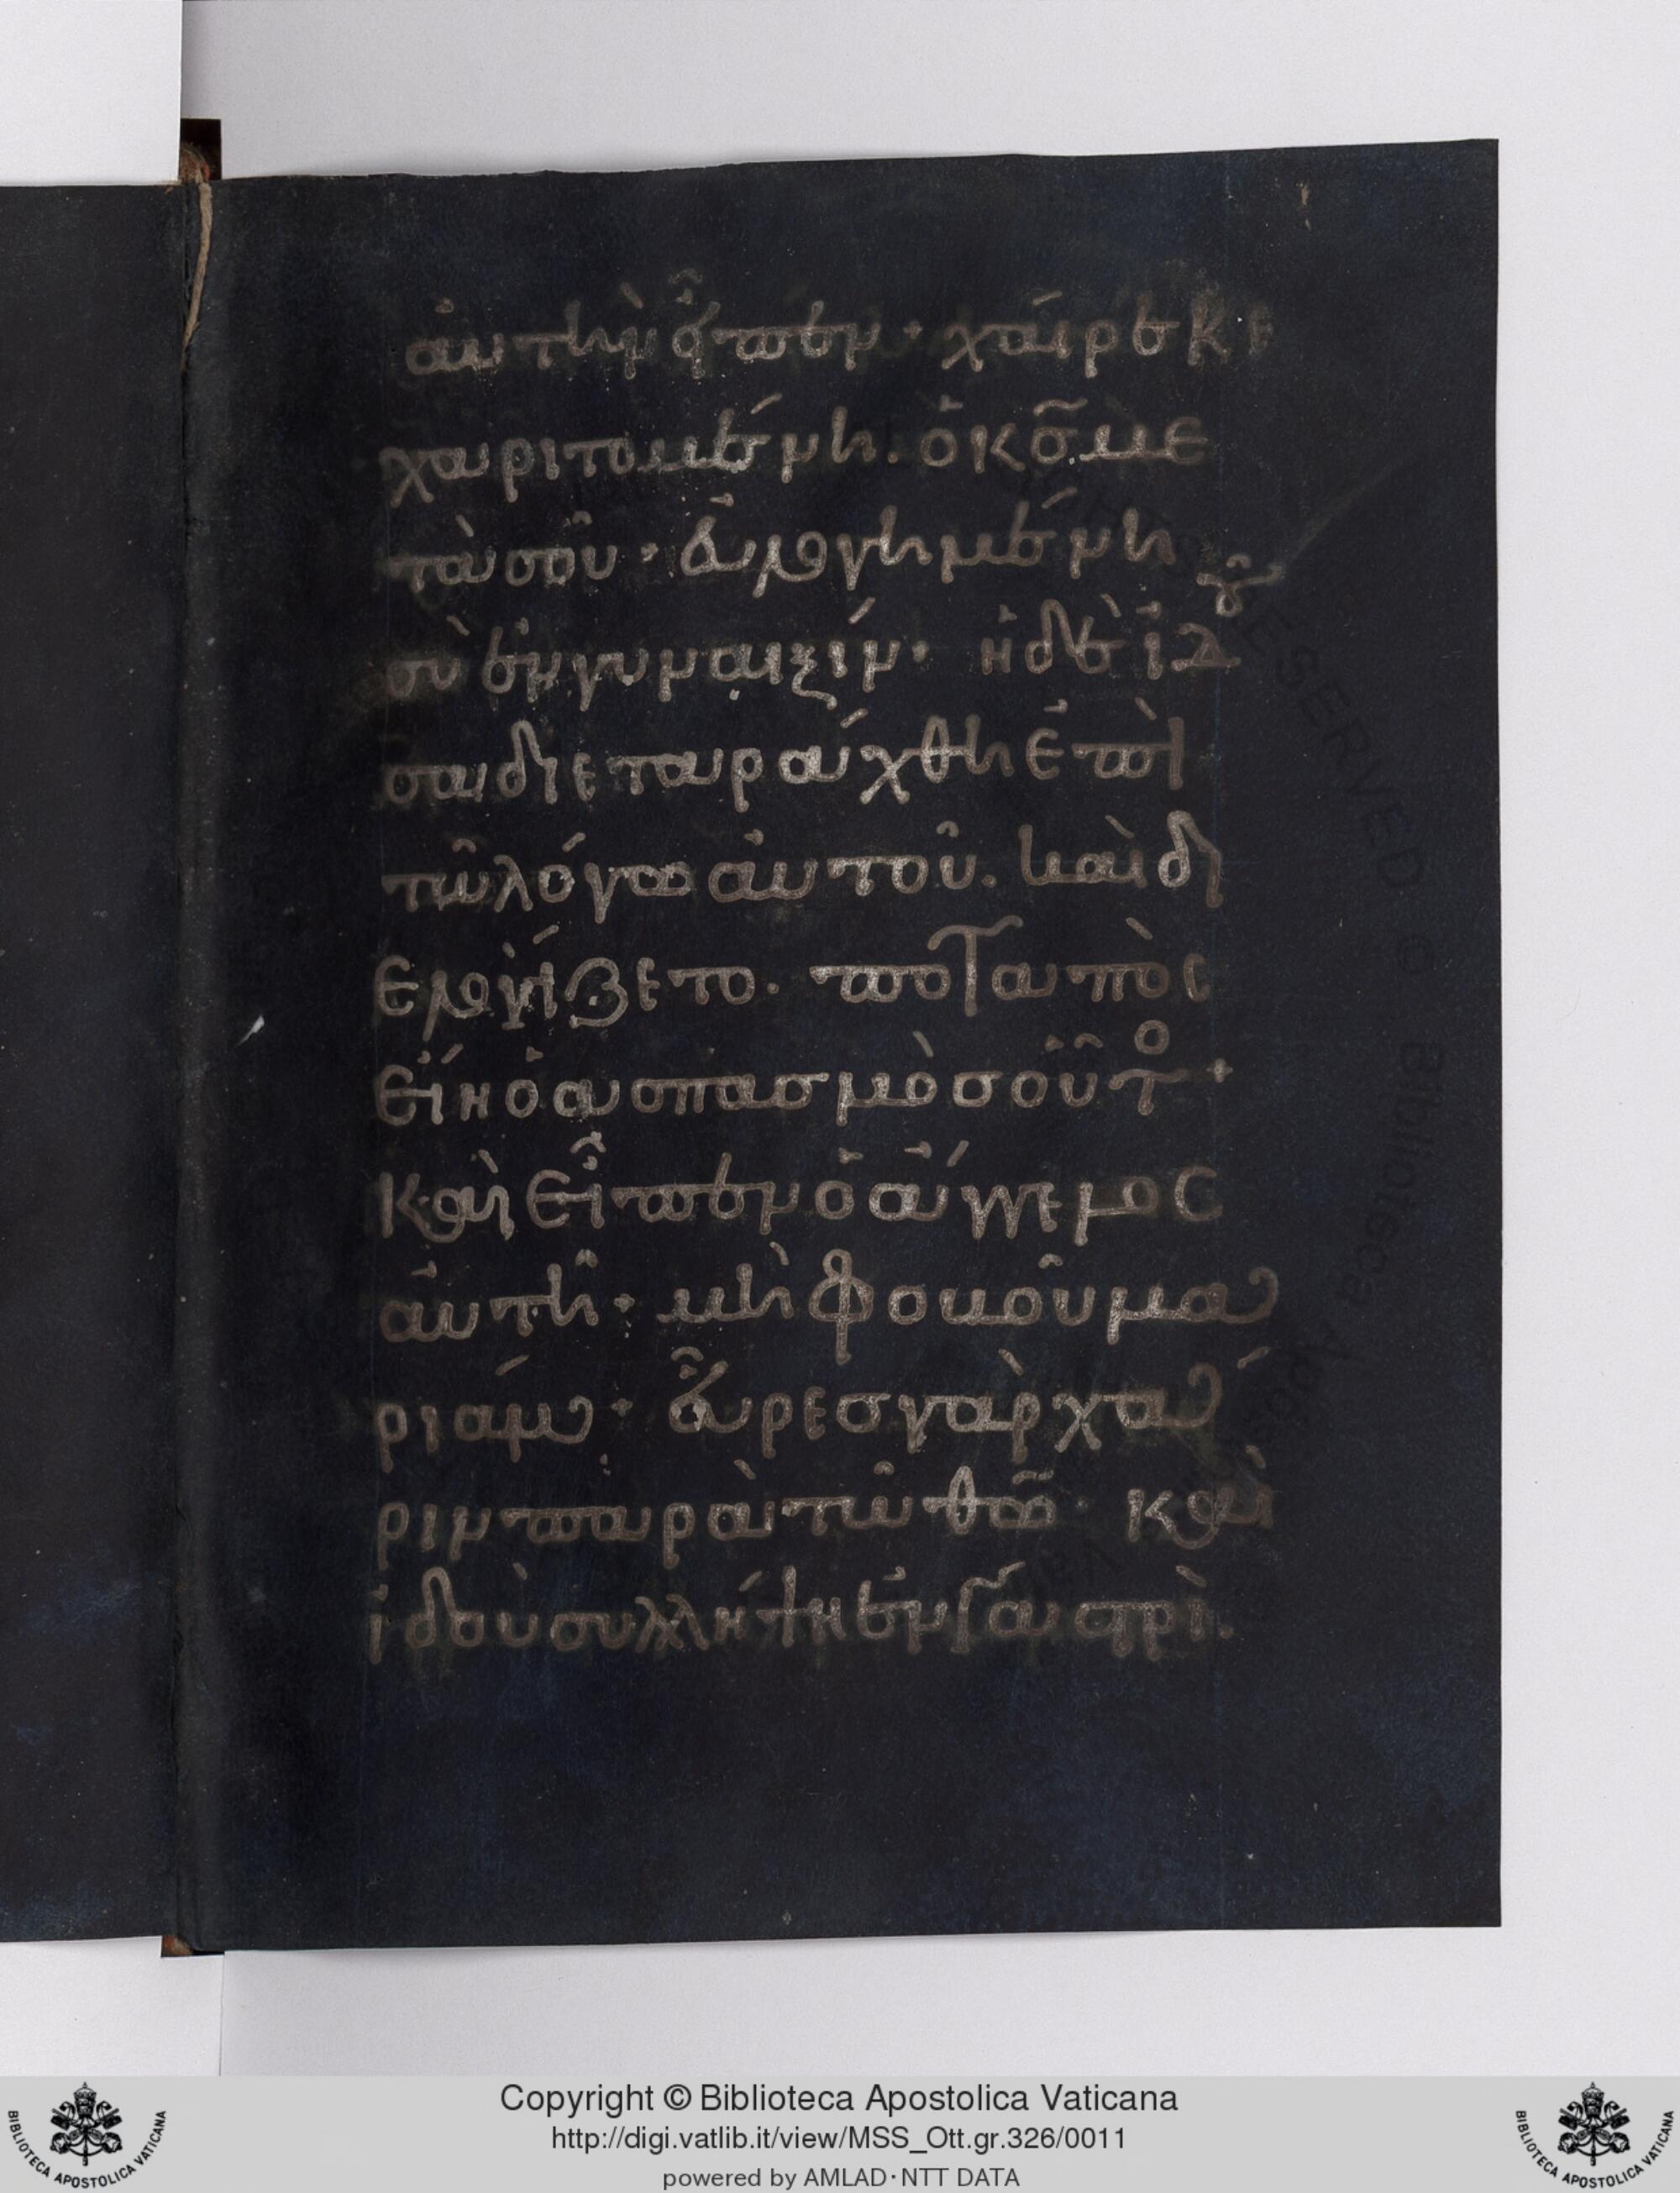 αὐτὴν εἶπεν· χαῖρε κε
χαριτωμένη. ὁ κ̅ς̅ με
τὰ σοῦ· εὐλογημένη
σὺ ἐν γυναιξίν· ἡ δὲ ἰδοῦ
σα διεταράχθη ἐπὶ
τῶ λόγω αὐτοῦ. καὶ δι
ελογίζετο. ποταπὸς
εἴη ὁ ἀσπασμὸς οὗτο·
καὶ εἶπεν ὁ ἄγγελος
αὐτῆ· μὴ φοβοῦ μα
ριάμ· εὗρες γὰρ χά
ριν παρὰ τῶ θ̅ω̅· καὶ
ἰδοὺ συλλήψη ἐν γαστρὶ.
RESERVED © Biblioteca Apostolica Vaticana
Copyright © Biblioteca Apostolica Vaticana
http://digi.vatlib.it/view/MSS_Ott.gr.326/0011
powered by AMLAD·NTT DATA
BIBLIOTECA APOSTOLICA VATICANA
BIBLIOTECA APOSTOLICA VATICANA